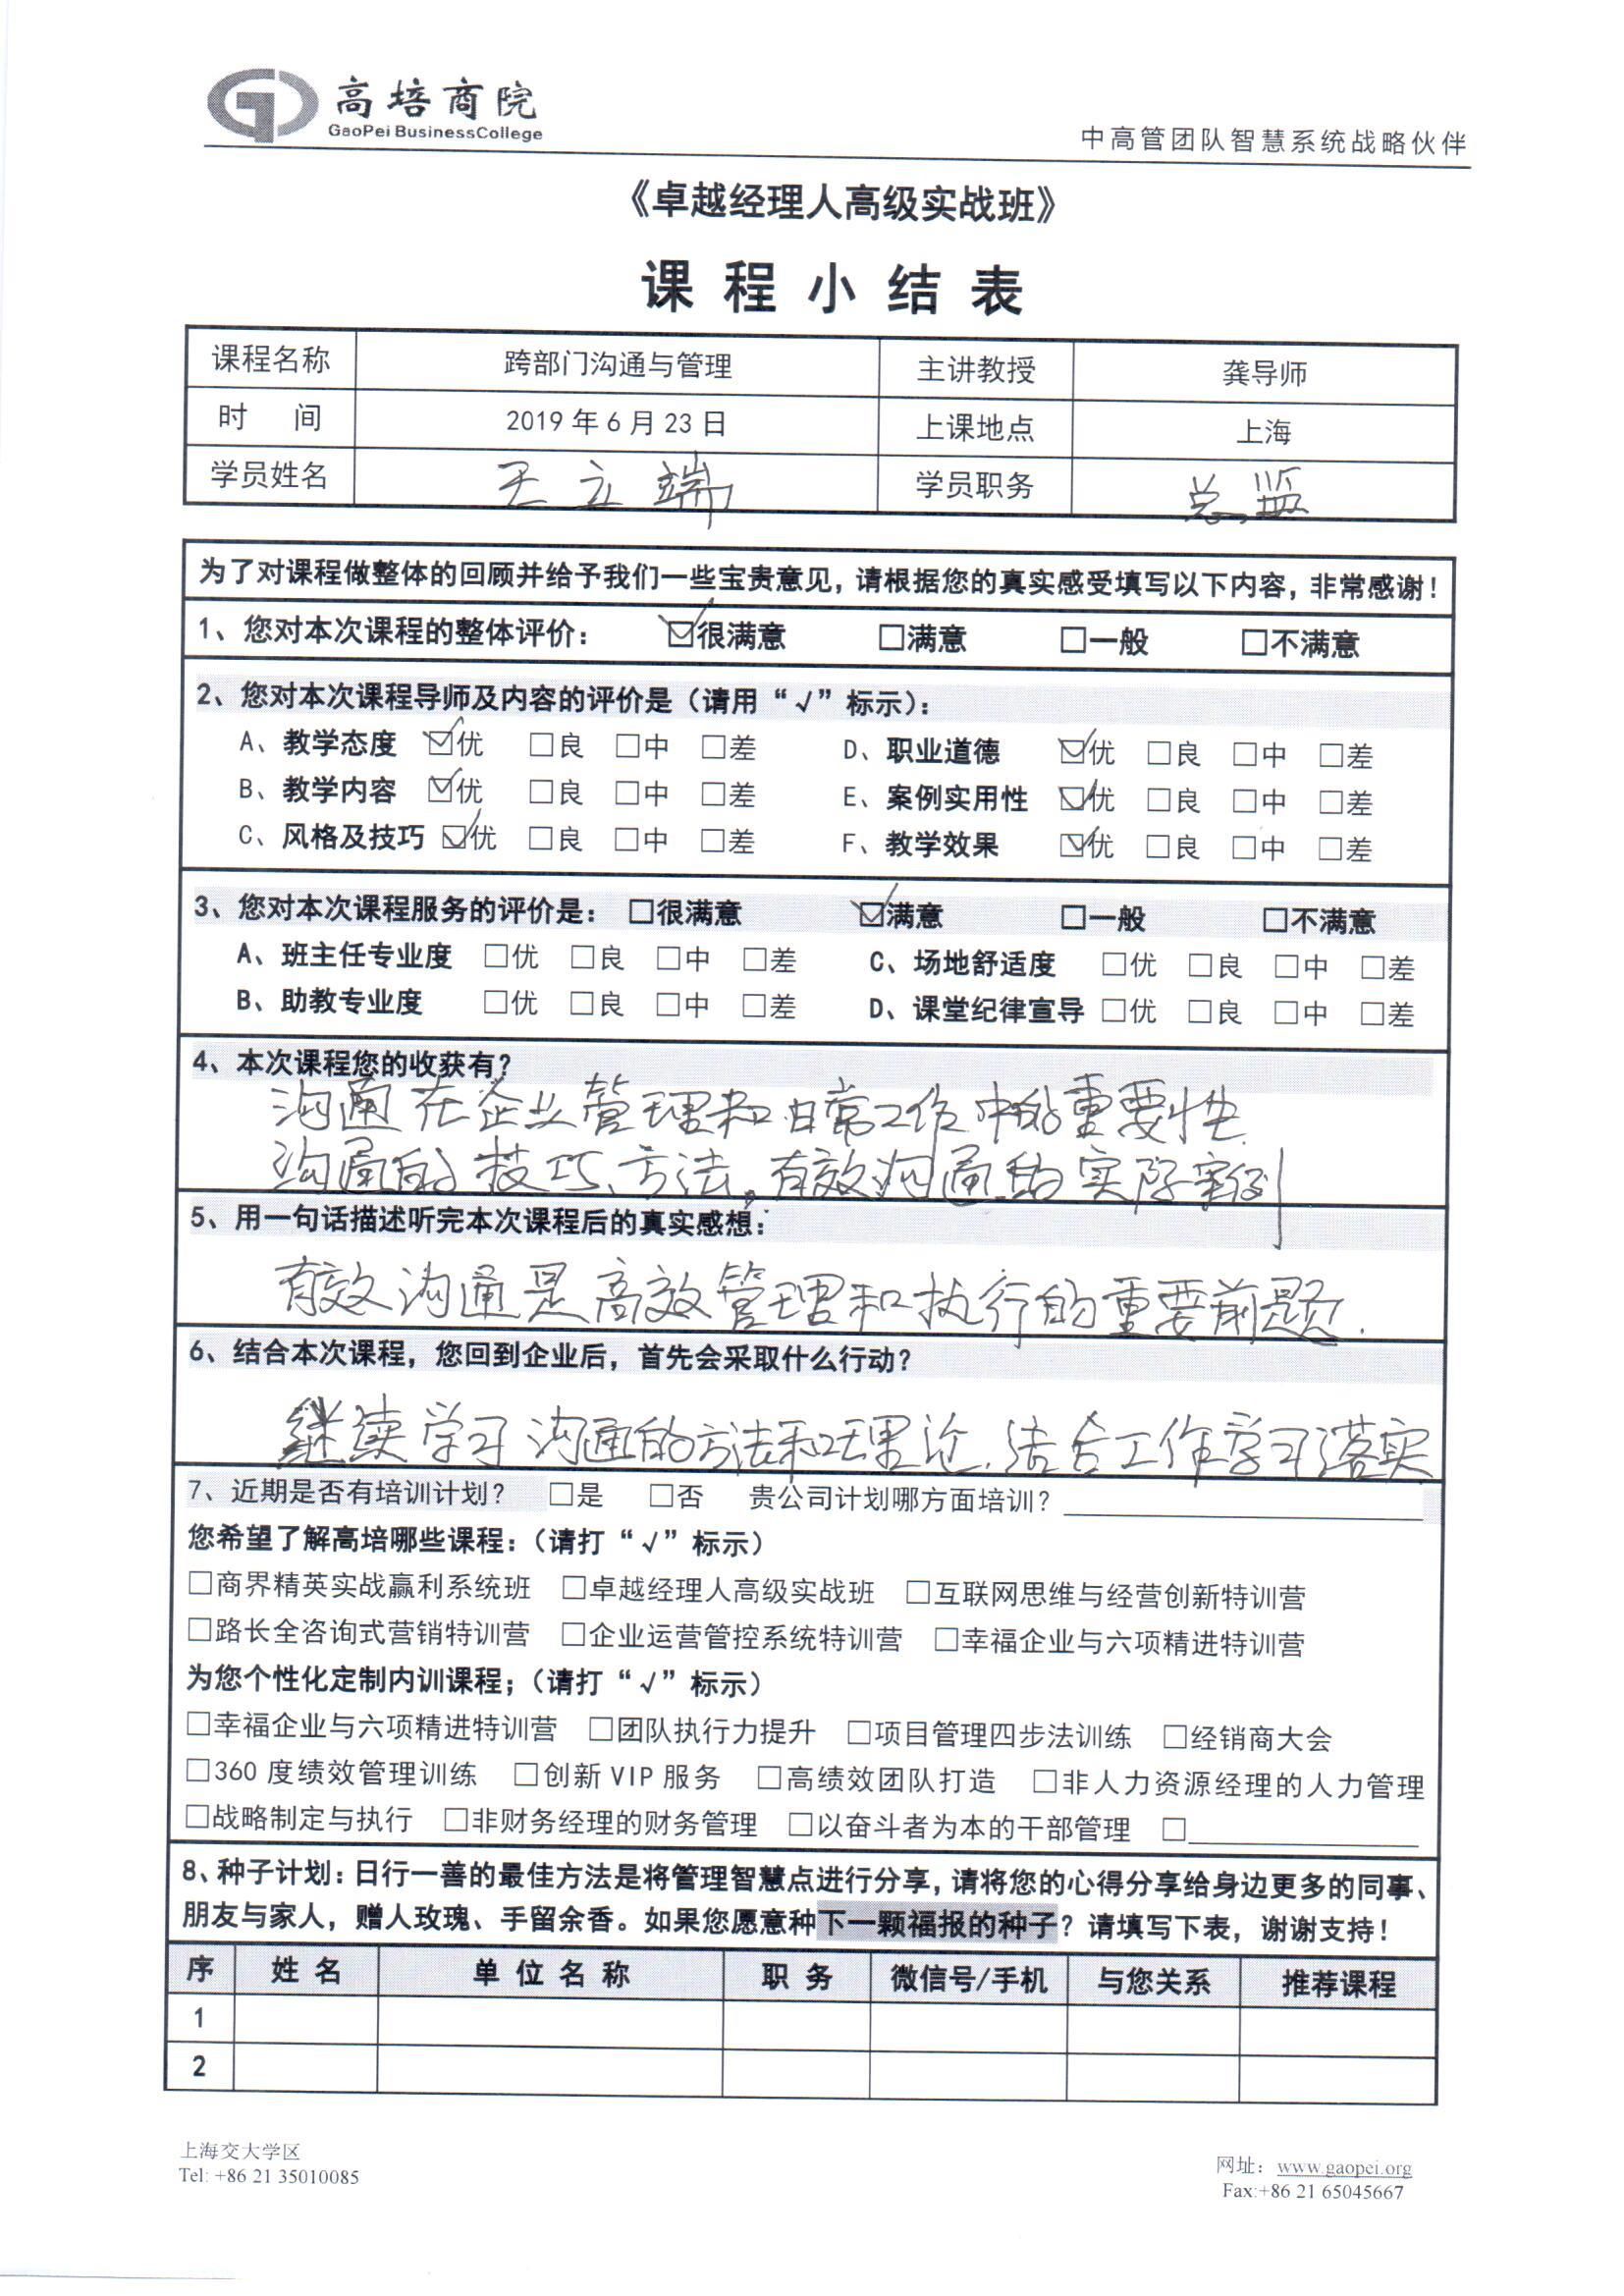 高培商院
GaoPei BusinessCollege
中高管团队智慧系统战略伙伴
《卓越经理人高级实战班》
课程小结表
课程名称 跨部门沟通与管理 主讲教授 龚导师
时 间 2019年6月23日 上课地点 上海
学员姓名 王立端 学员职务 总监
为了对课程做整体的回顾并给予我们一些宝贵意见，请根据您的真实感受填写以下内容，非常感谢！
1、您对本次课程的整体评价： ☑很满意 □满意 □一般 □不满意
2、您对本次课程导师及内容的评价是（请用“√”标示）：
A、教学态度 ☑优 □良 □中 □差 D、职业道德 ☑优 □良 □中 □差
B、教学内容 ☑优 □良 □中 □差 E、案例实用性 ☑优 □良 □中 □差
C、风格及技巧 ☑优 □良 □中 □差 F、教学效果 ☑优 □良 □中 □差
3、您对本次课程服务的评价是： □很满意 ☑满意 □一般 □不满意
A、班主任专业度 □优 □良 □中 □差 C、场地舒适度 □优 □良 □中 □差
B、助教专业度 □优 □良 □中 □差 D、课堂纪律宣导 □优 □良 □中 □差
4、本次课程您的收获有？
沟通在企业管理和日常工作中的重要性
沟通的技巧、方法。有效沟通的实际案例
5、用一句话描述听完本次课程后的真实感想：
有效沟通是高效管理和执行的重要前题.
6、结合本次课程，您回到企业后，首先会采取什么行动？
继续学习沟通的方法和理论.结合工作学习落实
7、近期是否有培训计划？ □是 □否 贵公司计划哪方面培训？
您希望了解高培哪些课程：（请打“√”标示）
□商界精英实战赢利系统班 □卓越经理人高级实战班 □互联网思维与经营创新特训营
□路长全咨询式营销特训营 □企业运营管控系统特训营 □幸福企业与六项精进特训营
为您个性化定制内训课程；（请打“√”标示）
□幸福企业与六项精进特训营 □团队执行力提升 □项目管理四步法训练 □经销商大会
□360度绩效管理训练 □创新VIP服务 □高绩效团队打造 □非人力资源经理的人力管理
□战略制定与执行 □非财务经理的财务管理 □以奋斗者为本的干部管理 □
8、种子计划：日行一善的最佳方法是将管理智慧点进行分享，请将您的心得分享给身边更多的同事、
朋友与家人，赠人玫瑰、手留余香。如果您愿意种下一颗福报的种子？请填写下表，谢谢支持！
序 姓名 单位名称 职务 微信号/手机 与您关系 推荐课程
1
2
上海交大学区
Tel: +86 21 35010085
网址：www.gaopei.org
Fax:+86 21 65045667